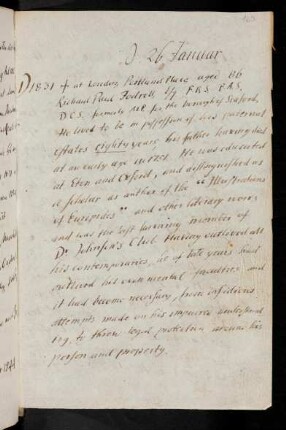 ) 26 Januar
1831 + at London Portland Place aged 86
Richard Paul Jodrell Esq F.R.S. F.A.S.
D.C.L. formerly M.P. for the borough of Seaford,
He lived to be in possession of his paternal
estates eighty years his father leaving died
at an early age in 1751. He was educated
at Eton and Oxford, and distinguished as
a scholar as author of the "Illustrations
of Euripides" and other literary works
and was the last surviving member of
Dr Johnson's Club. Having outlived all
his contemporaries, he of late years had
outlived his own mental faculties and
it had become necessary, from injudicious
attempts made on his impaired understand
ing, to throw legal protection around his
person and property.